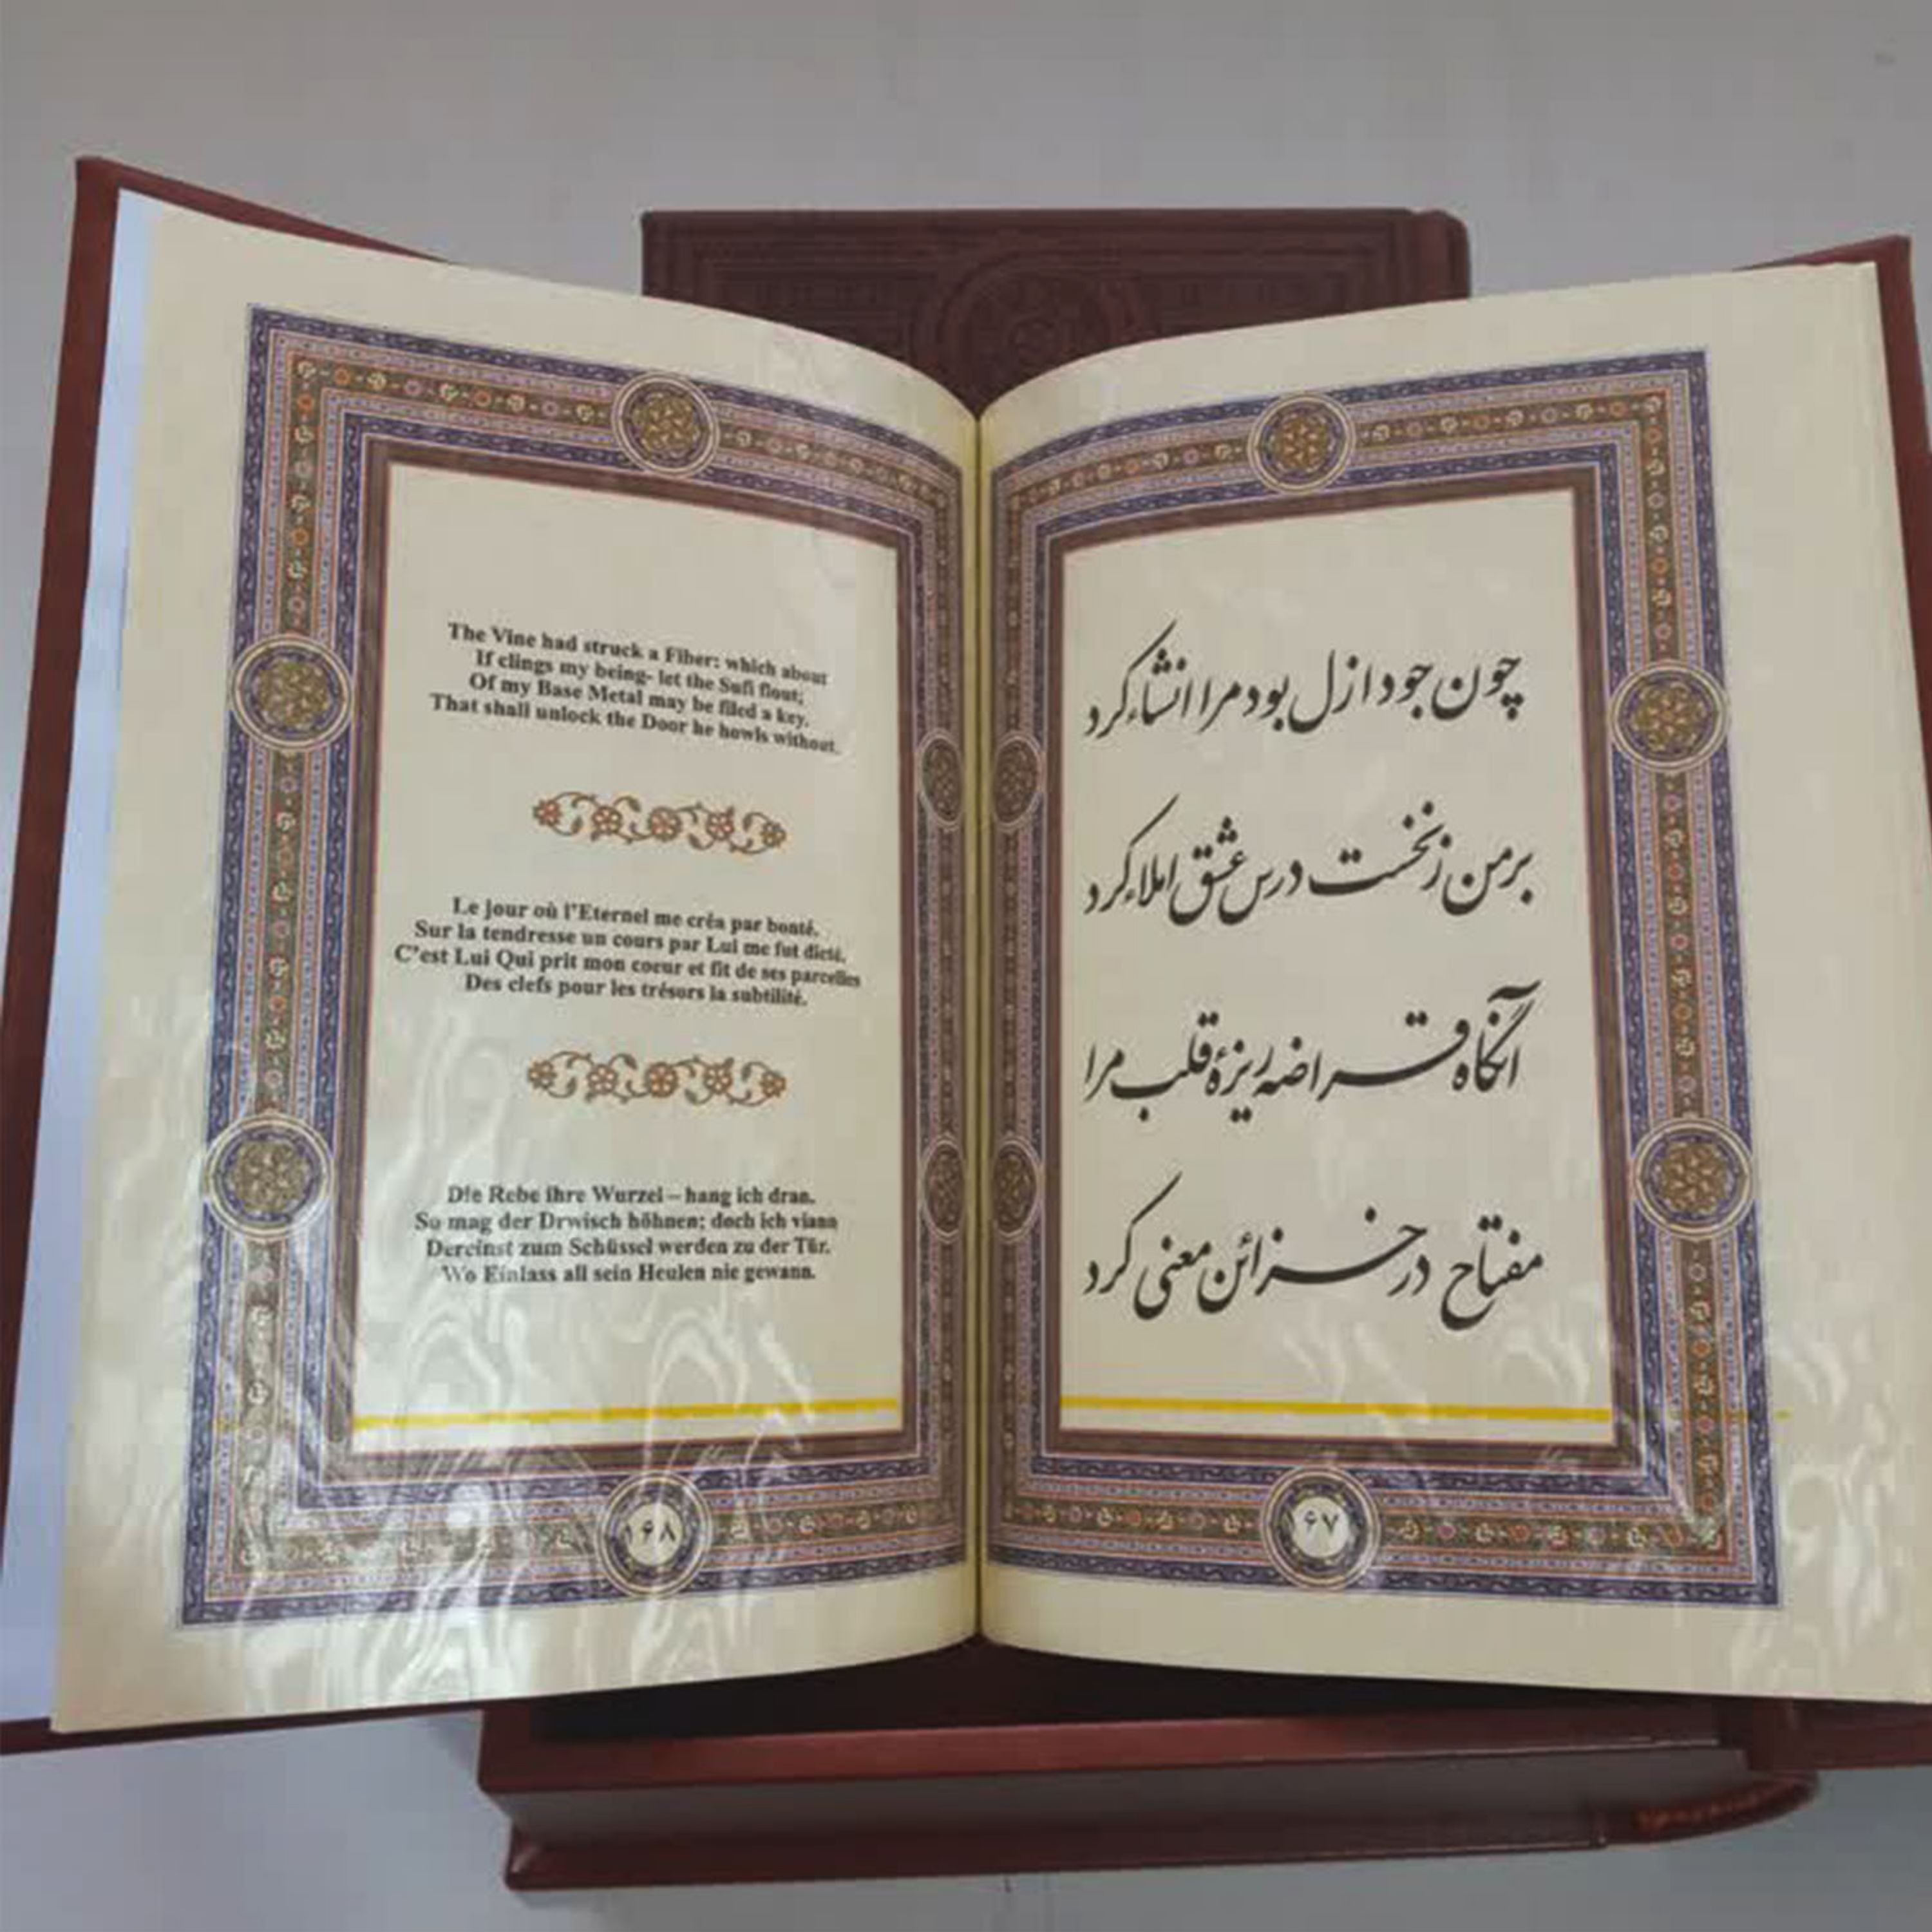 The Vine had struck a Fiber: which about
If clings my being- let the Sufi flout;
Of my Base Metal may be filed a key.
That shall unlock the Door he howls without.
Le jour où l'Eternel me créa par bonté.
Sur la tendresse un cours par Lui me fut dicté.
C'est Lui Qui prit mon coeur et fit de ses parcelles
Des clefs pour les trésors la subtilité.
Die Rebe ihre Wurzel – hang ich dran.
So mag der Drwisch höhnen; doch ich viann
Dereinst zum Schüssel werden zu der Tür.
Wo Einlass all sein Heulen nie gewann.
۱۶۸
چون جود ازل بود مرا انشاء کرد
بر من ز نخست درس عشق املاء کرد
آنگاه قراضه ریزهٔ قلب مرا
مفتاح در خزائن معنی کرد
۱۶۷